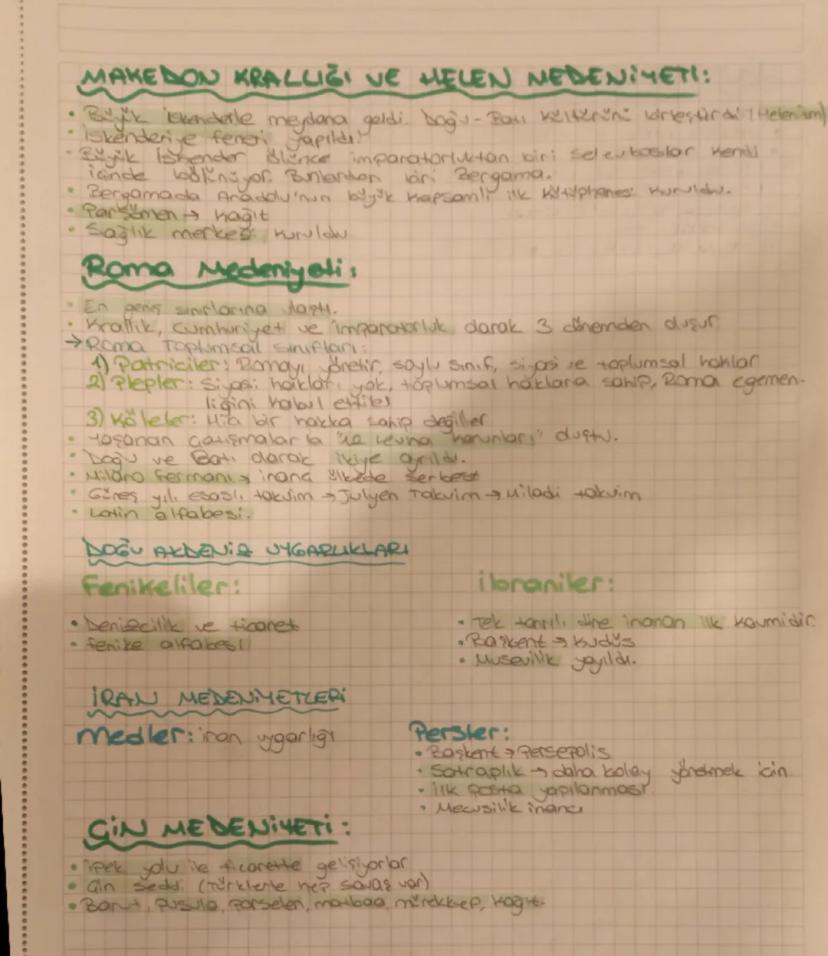 MAKEDON KRALLIĞI VE HELEN MEDENİYETİ:
• Büyük İskenderle meydana geldi. Doğu-Batı kültürünü birleştirdi (Helenizm)
• İskenderiye feneri yapıldı.
• Büyük İskender ölünce imparatorluktan biri Selevkoslar kendi
içinde bölünüyor. Bunlardan biri Bergama.
• Bergamada Anadolu'nun büyük kapsamlı ilk kütüphanesi kuruldu.
• Parşömen → kağıt
• Sağlık merkezi kuruldu
Roma Medeniyeti:
• En geniş sınırlarına ulaştı.
• Krallık, Cumhuriyet ve İmparatorluk olarak 3 dönemden oluşur
→ Roma Toplumsal Sınıfları:
1) Patriciler: Romayı yönetir, soylu sınıf, siyasi ve toplumsal haklar
2) Plepler: Siyasi hakları yok, toplumsal haklara sahip, Roma egemen-
liğini kabul ettiler
3) Köleler: Hiç bir hakka sahip değiller
• Yaşanan çatışmalarla "12 Levha kanunları" oluştu.
• Doğu ve Batı olarak ikiye ayrıldı.
• Milano fermanı → inanç ülkede serbest
• Güneş yılı esaslı takvim → Julyen Takvim → Miladi takvim
• Latin alfabesi.
DOĞU AKDENİZ UYGARLIKLARI
Fenikeliler:
• Denizcilik ve ticaret
• fenike alfabesi
İbraniler:
• Tek tanrılı dine inanan ilk kavmidir.
• Başkent → Kudüs
• Musevilik yayıldı.
İRAN MEDENİYETLERİ
Medler: iran uygarlığı
Persler:
• Başkent → Persepolis
• Satraplık → daha kolay yönetmek için
• ilk posta yapılanması
• Mecusilik inancı
ÇİN MEDENİYETİ:
• ipek yolu ile ticarette gelişiyorlar
• Çin Seddi (Türklerle hep savaş var)
• Barut, pusula, porselen, matbaa, mürekkep, kağıt.